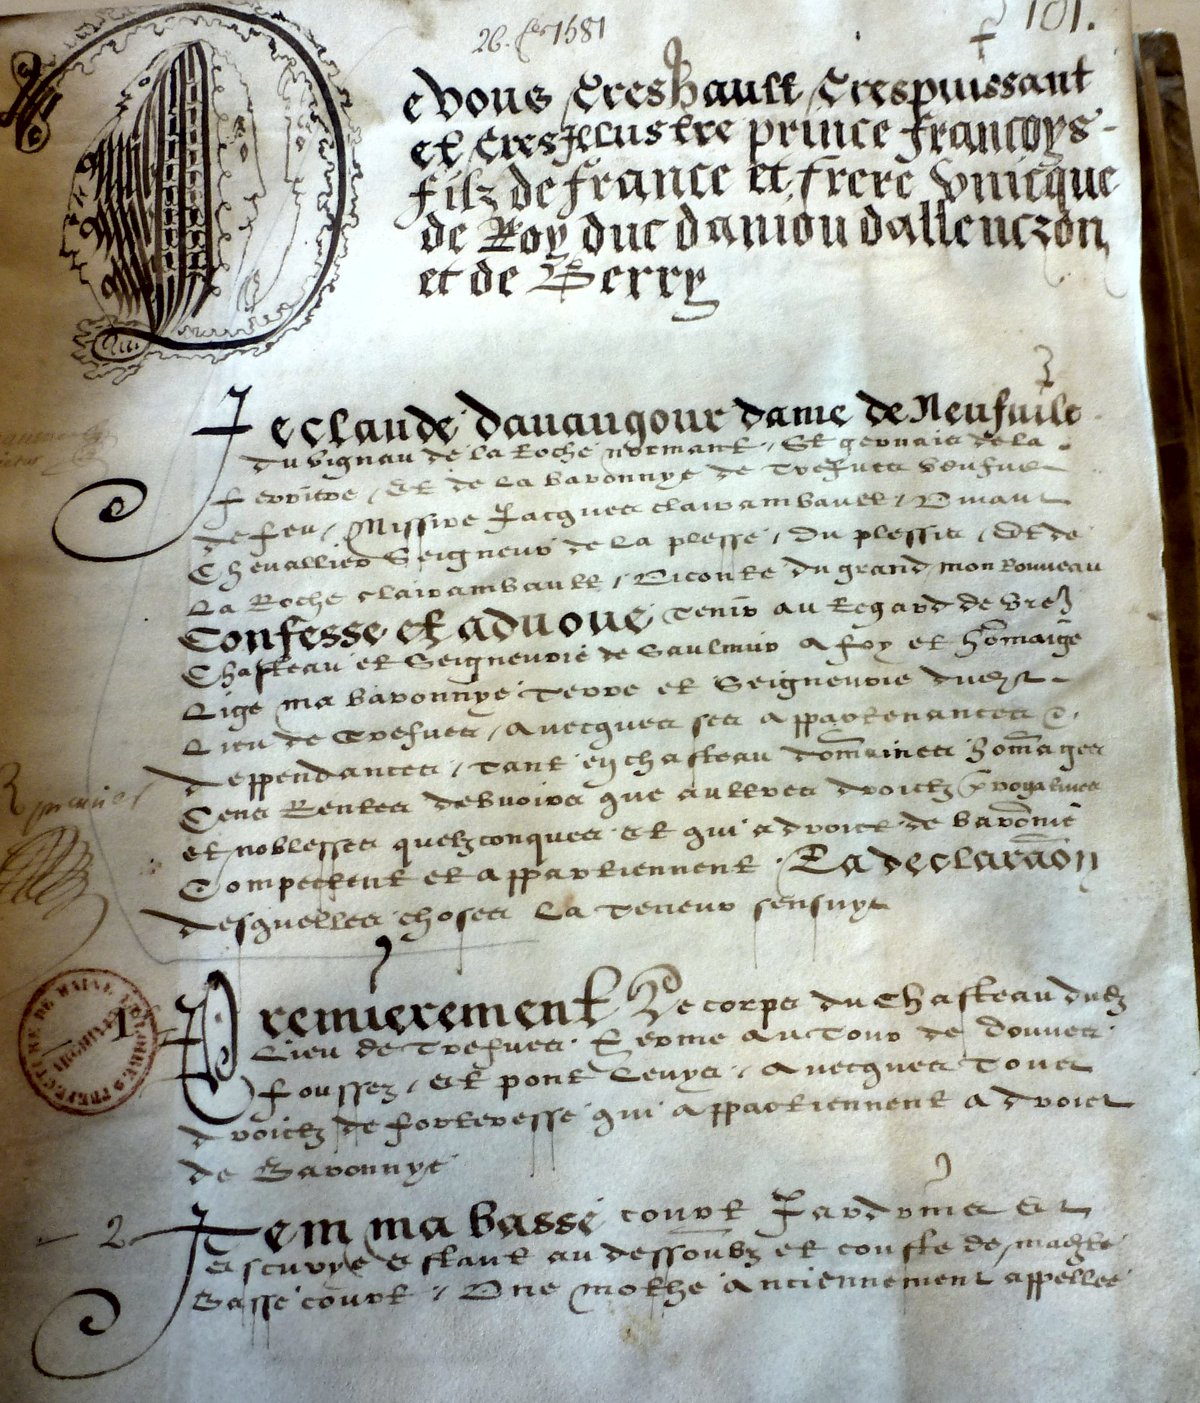 26. fer 1581
101.
De vous Treshault Trespuissant
et Tresillustre prince francoys
filz de france et frere Vnicque
de Roy duc daniou dallenczon
et de Berry
Je claude dauaugour dame de Neufuile
du vignau de la Roche normant, Et geruaise de la
ferriere, Et de la baronnye de Trefues veufue
de feu, Missire Jacques clairambault, viuant
Cheuallier Seigneur de la plesse, du plessis, Et de
La Roche clairambault, Viconte du grand montrouueau
Confesse et aduoue Tenir au Regard de vre
Chasteau et Seigneurie de Saulmur a foy et homaige
Lige ma baronnye Terre et Seigneurie dudict
Lieu de Trefues, auecques ses appartenances &
deppendances, tant en chasteau dommaines hommages
Cens Rentes debuoirs que aultres droictz
et noblesses quelzconques et qui a droict de baronnie
Competent et appartiennent. La declaraon
desquelles choses La Teneur sensuyt
premier
1
Premierement Le corps du Chasteau dudict
Lieu de Trefues. ferme autour de douues
foussez, Et pont Leuys, auecques Tous
droictz de forteresse qui appartiennent a droict
de Baronnye
PREFECTURE DE MAINE ET LOIRE
ARCHIVES
2
Item ma basse court Jardrins Et
Escurye Estant au dessoubz et couste de madicte
Basse court, Vne mothe anciennement appellee